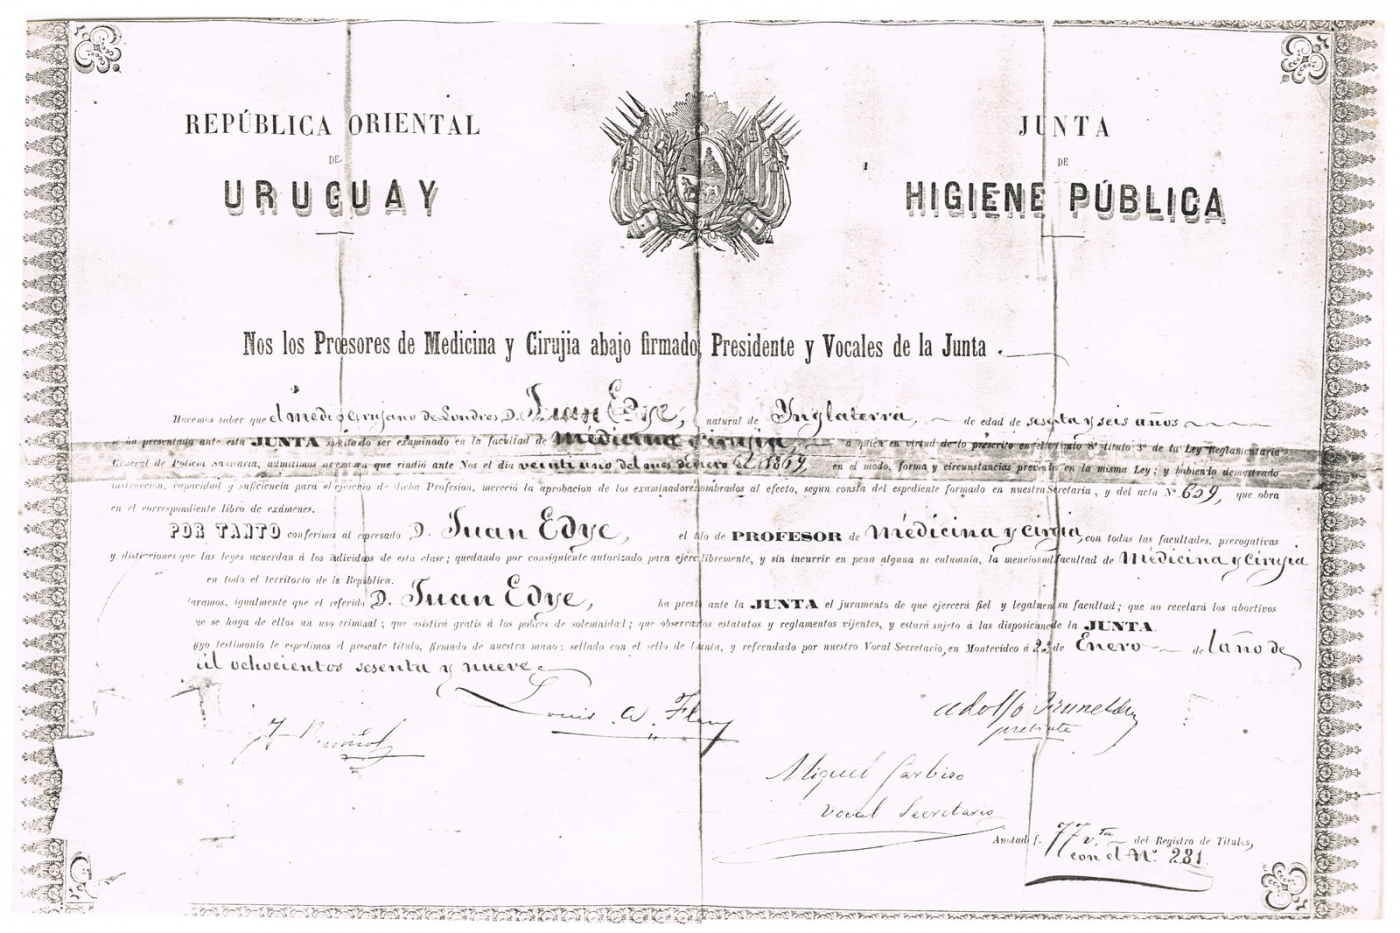 REPÚBLICA ORIENTAL
DE
URUGUAY
JUNTA
DE
HIGIENE PÚBLICA
Nos los Proesores de Medicina y Cirujia abajo firmado, Presidente y Vocales de la Junta
Hacemos saber que el medico cirujano de Londres D. Juan Edye, natural de Inglaterra, de edad de sesenta y seis años
se ha presentado ante esta JUNTA solicitado ser examinado en la facultad de Medicina y Cirujia a quien en virtud de lo prescrito en el título 3º de la Ley Reglamentaria
General de Policia Sanitaria, admitimos a examen que rindió ante Nos el dia veinti uno del mes de Enero de 1869, en el modo, forma y circunstancias previstas en la misma Ley; y habiento demostrado
instruccion, capacidad y suficiencia para el ejercicio de dicha Profesion, mereció la aprobacion de los examinadores nombrados al efecto, segun consta del espediente formado en nuestra Secretaria, y del acta Nº 609, que obra
en el correspondiente libro de exámenes.
POR TANTO conferima al epresado D. Juan Edye, el tilo de PROFESOR de Medicina y Cirgia, con todas las facultades, prerogaticas
y distinciones que las leyes acuerdan á los indicidios de esta clase; quedando por consiguiente autorizado para ejerce libremente, y sin incurrir en pena alguna ni calumnia, la mencionad facultad de Medicina y Cirujia
en todo el territorio de la República.
aramos, igualmente que el referido D. Juan Edye, ha prest ante la JUNTA el juramento de que ejercerá fiel y legalmen su facultad; que no revelará los abortivos
ue se haga de ellos un uso criminal; que asistirá gratis á los pobres de solemnidad; que observar os estatutos y reglamentos vijentes, y estará sujeto á las disposicine de la JUNTA.
yyo testimonio le espedimos el presente título, firmado de nuestra mano; sellado con el sello de la unta, y refrendado por nuestro Vocal Secretario, en Montevideo á 22 de Enero de l año de
il ochocientos sesenta y nueve
Louis A. Fleury
Adolfo Brunel
presidente
Miguel Garbiso
Vocal Secretario
Anotado f. 77 v.ta del Registro de Titulos,
con el Nº 281